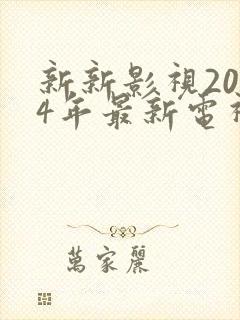 新新影視20
4年最新電視
萬家麗